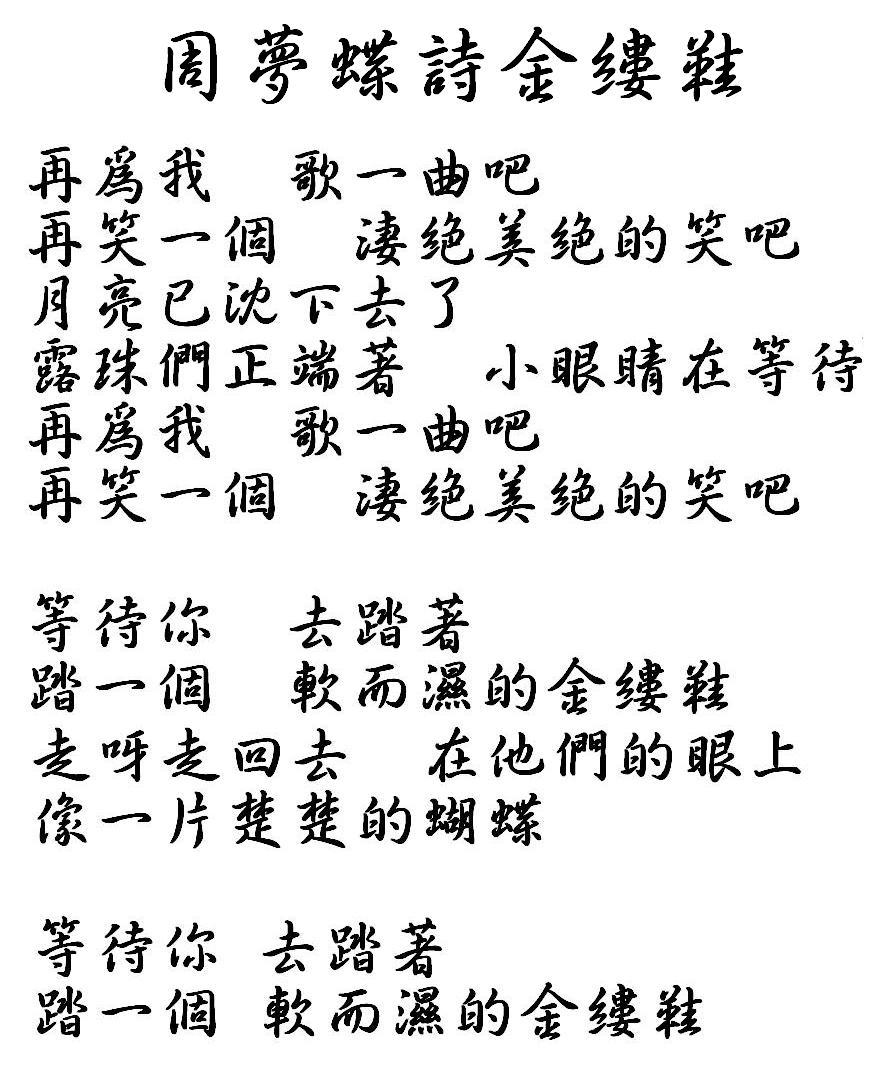 周夢蝶詩金縷鞋
再為我　歌一曲吧
再笑一個　淒絕美絕的笑吧
月亮已沈下去了
露珠們正端著　小眼睛在等待
再為我　歌一曲吧
再笑一個　淒絕美絕的笑吧
等待你　去踏著
踏一個　軟而濕的金縷鞋
走呀走回去　在他們的眼上
像一片楚楚的蝴蝶
等待你　去踏著
踏一個　軟而濕的金縷鞋